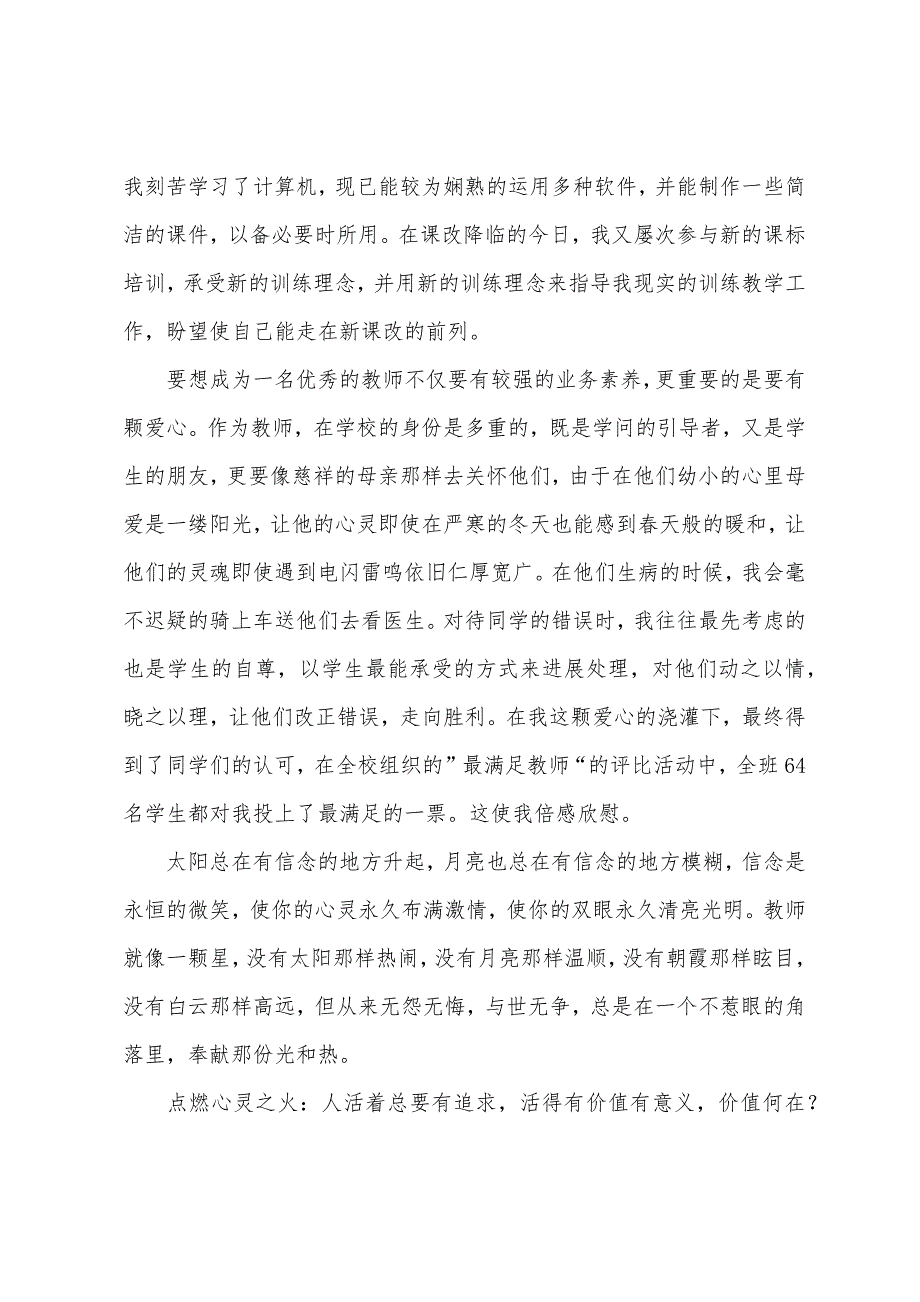 我刻苦学习了计算机，现已能较为娴熟的运用多种软件，并能制作一些简
洁的课件，以备必要时所用。在课改降临的今日，我又屡次参与新的课标
培训，承受新的训练理念，并用新的训练理念来指导我现实的训练教学工
作，盼望使自己能走在新课改的前列。
要想成为一名优秀的教师不仅要有较强的业务素养，更重要的是要有
颗爱心。作为教师，在学校的身份是多重的，既是学问的引导者，又是学
生的朋友，更要像慈祥的母亲那样去关怀他们，由于在他们幼小的心里母
爱是一缕阳光，让他的心灵即使在严寒的冬天也能感到春天般的暖和，让
他们的灵魂即使遇到电闪雷鸣依旧仁厚宽广。在他们生病的时候，我会毫
不迟疑的骑上车送他们去看医生。对待同学的错误时，我往往最先考虑的
也是学生的自尊，以学生最能承受的方式来进展处理，对他们动之以情，
晓之以理，让他们改正错误，走向胜利。在我这颗爱心的浇灌下，最终得
到了同学们的认可，在全校组织的”最满足教师“的评比活动中，全班 64
名学生都对我投上了最满足的一票。这使我倍感欣慰。
太阳总在有信念的地方升起，月亮也总在有信念的地方模糊，信念是
永恒的微笑，使你的心灵永久布满激情，使你的双眼永久清亮光明。教师
就像一颗星，没有太阳那样热闹，没有月亮那样温顺，没有朝霞那样眩目，
没有白云那样高远，但从来无怨无悔，与世无争，总是在一个不惹眼的角
落里，奉献那份光和热。
点燃心灵之火：人活着总要有追求，活得有价值有意义，价值何在？